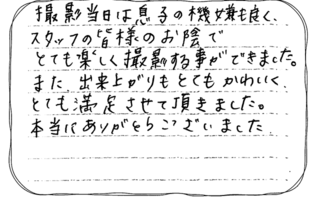 撮影当日は息子の機嫌も良く、
スタッフの皆様のお陰で
とても楽しく撮影する事ができました。
また、出来上がりもとてもかわいく、
とても満足させて頂きました。
本当にありがとうございました